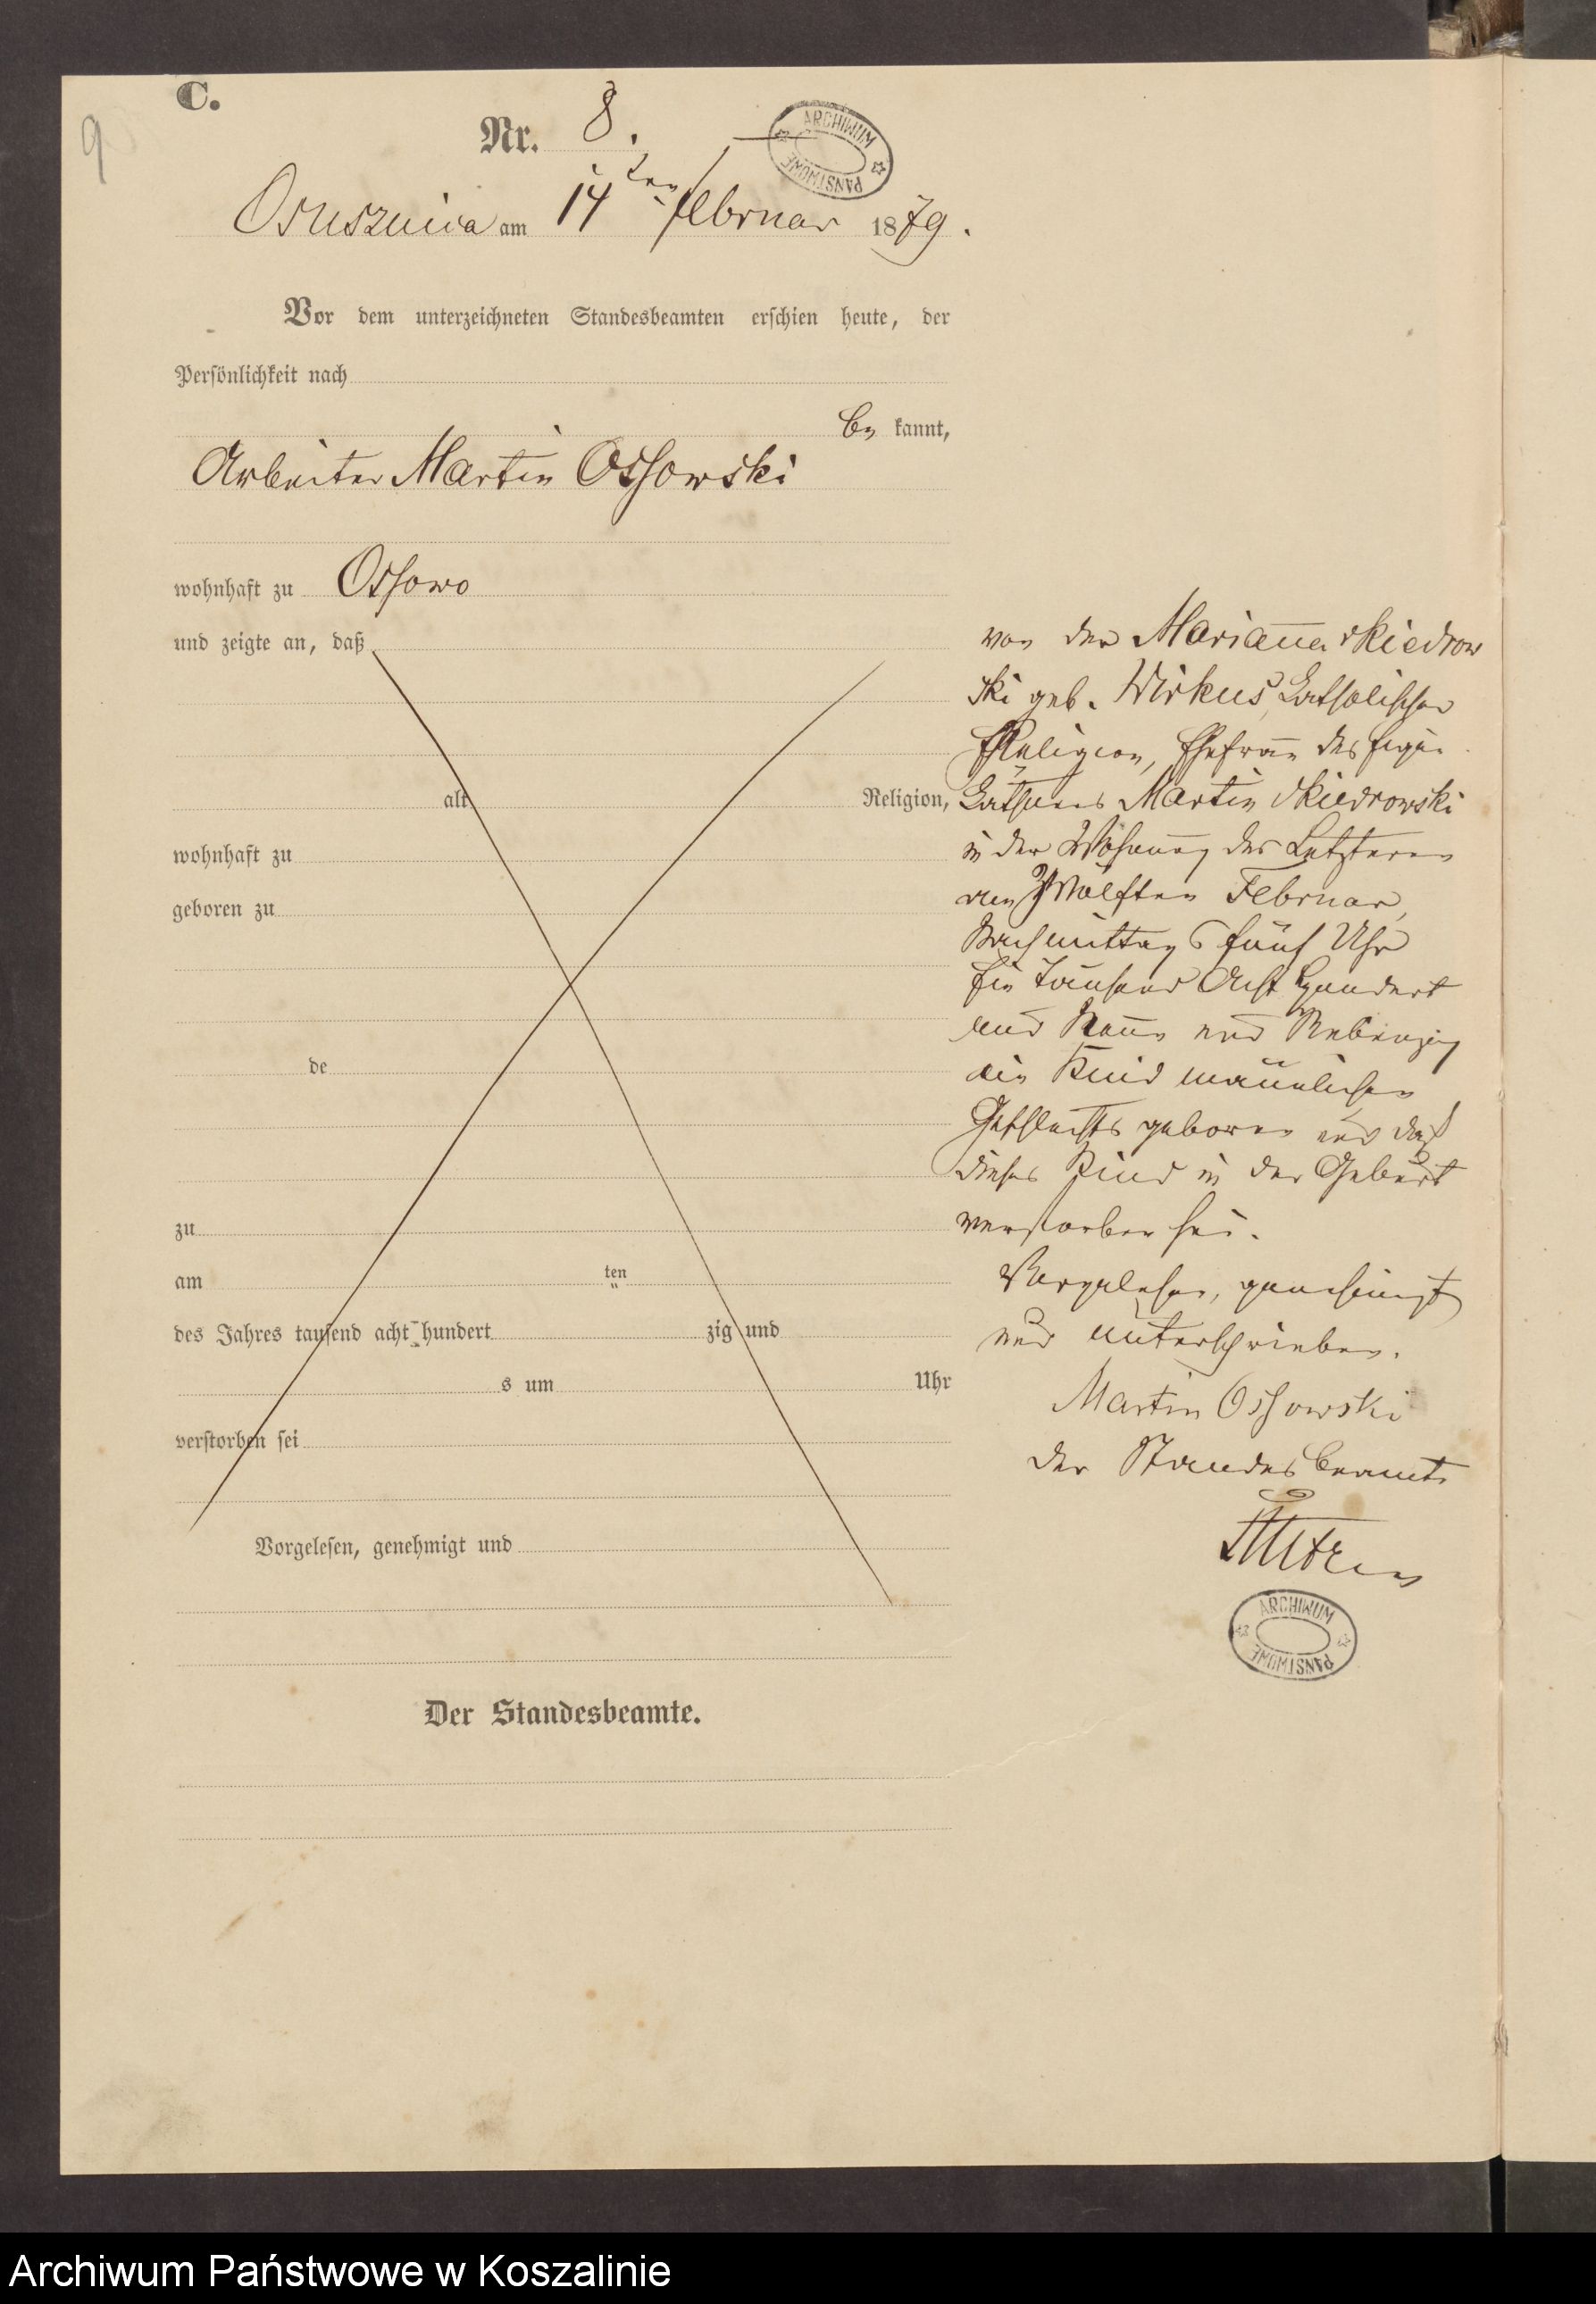 C.
9
Nr. 8.
ARCHIWUM PAŃSTWOWE
Osusznica am 14ten Februar 1879.
Vor dem unterzeichneten Standesbeamten erschien heute, der
Persönlichkeit nach
be kannt,
Arbeiter Martin Ossowski
wohnhaft zu Ossowo
und zeigte an, daß
alt Religion,
wohnhaft zu
geboren zu
de
zu
am ten
des Jahres tausend acht hundert zig und
s um Uhr
verstorben sei
Vorgelesen, genehmigt und
Der Standesbeamte.
von der Marianna Skiedrow
ski geb. Wirkus, katholischer
Religion, Ehefrau des Eigen
Käthners Martin Skiedrowski
in der Wohnung des Letzteren
am Zwölften Februar,
Nachmittags fünf Uhr
Ein Tausend Acht Hundert
und Neun und Siebenzig
ein Kind männlichen
Geschlechts geboren und daß
dieses Kind in der Geburt
verstorben sei.
Vorgelesen, genehmigt
und unterschrieben.
Martin Ossowski
der Standesbeamte
ARCHIWUM PAŃSTWOWE
Archiwum Państwowe w Koszalinie